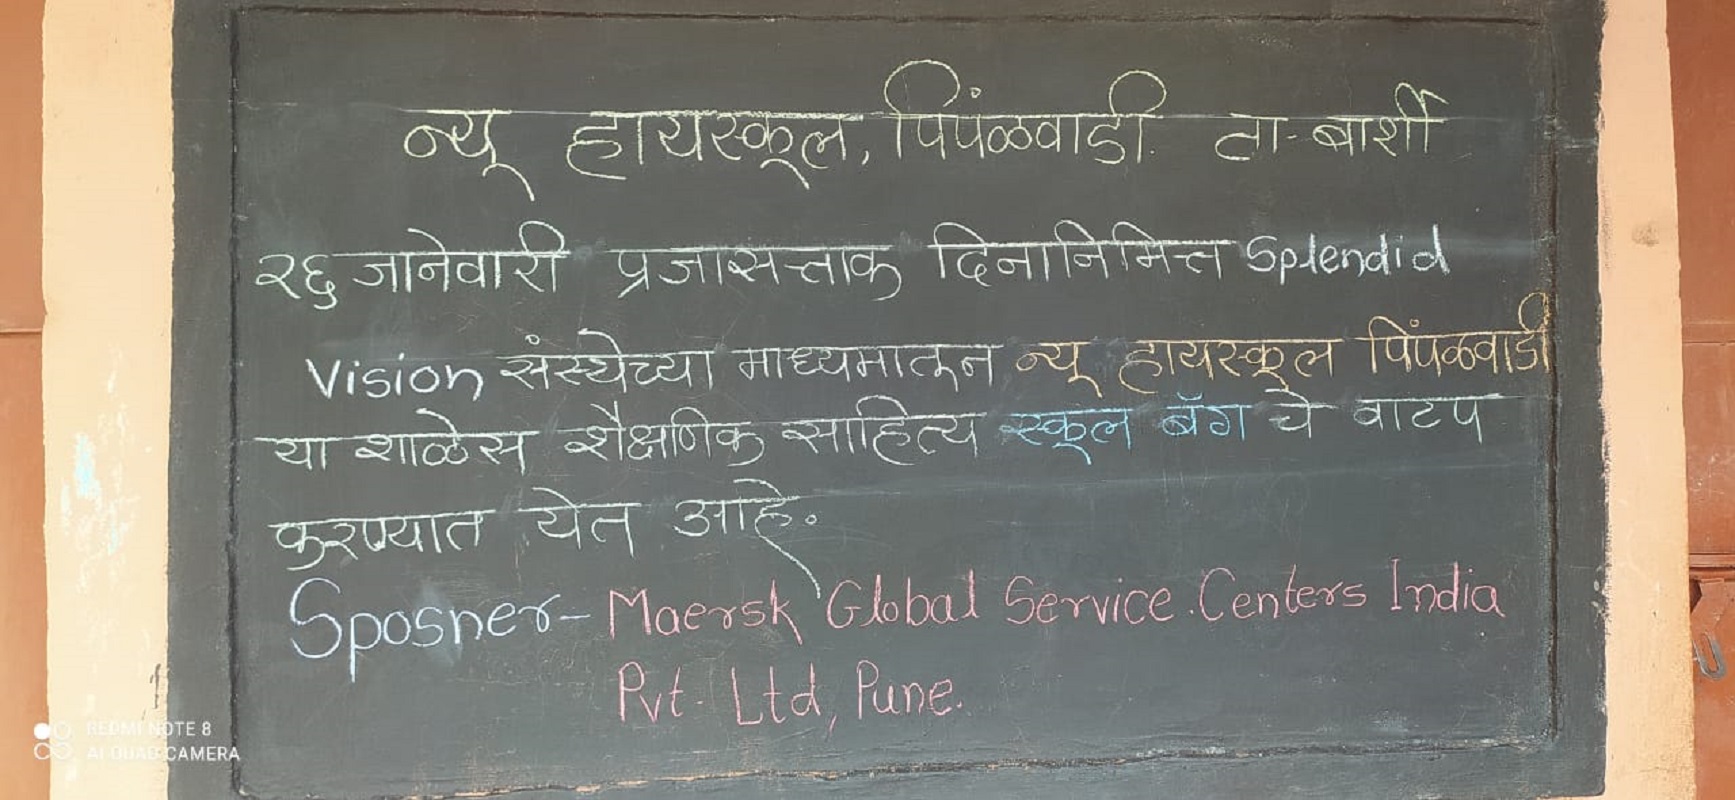 न्यू हायस्कूल, पिंपळवाडी. ता-बार्शी
२६ जानेवारी प्रजासत्ताक दिनानिमित्त Splendid
Vision संस्थेच्या माध्यमातून न्यू हायस्कूल पिंपळवाडी
या शाळेस शैक्षणिक साहित्य स्कूल बॅग चे वाटप
करण्यात येत आहे.
Sposner- Maersk Global Service.Centers India
Pvt. Ltd, Pune.
REDMI NOTE 8
AI QUAD CAMERA